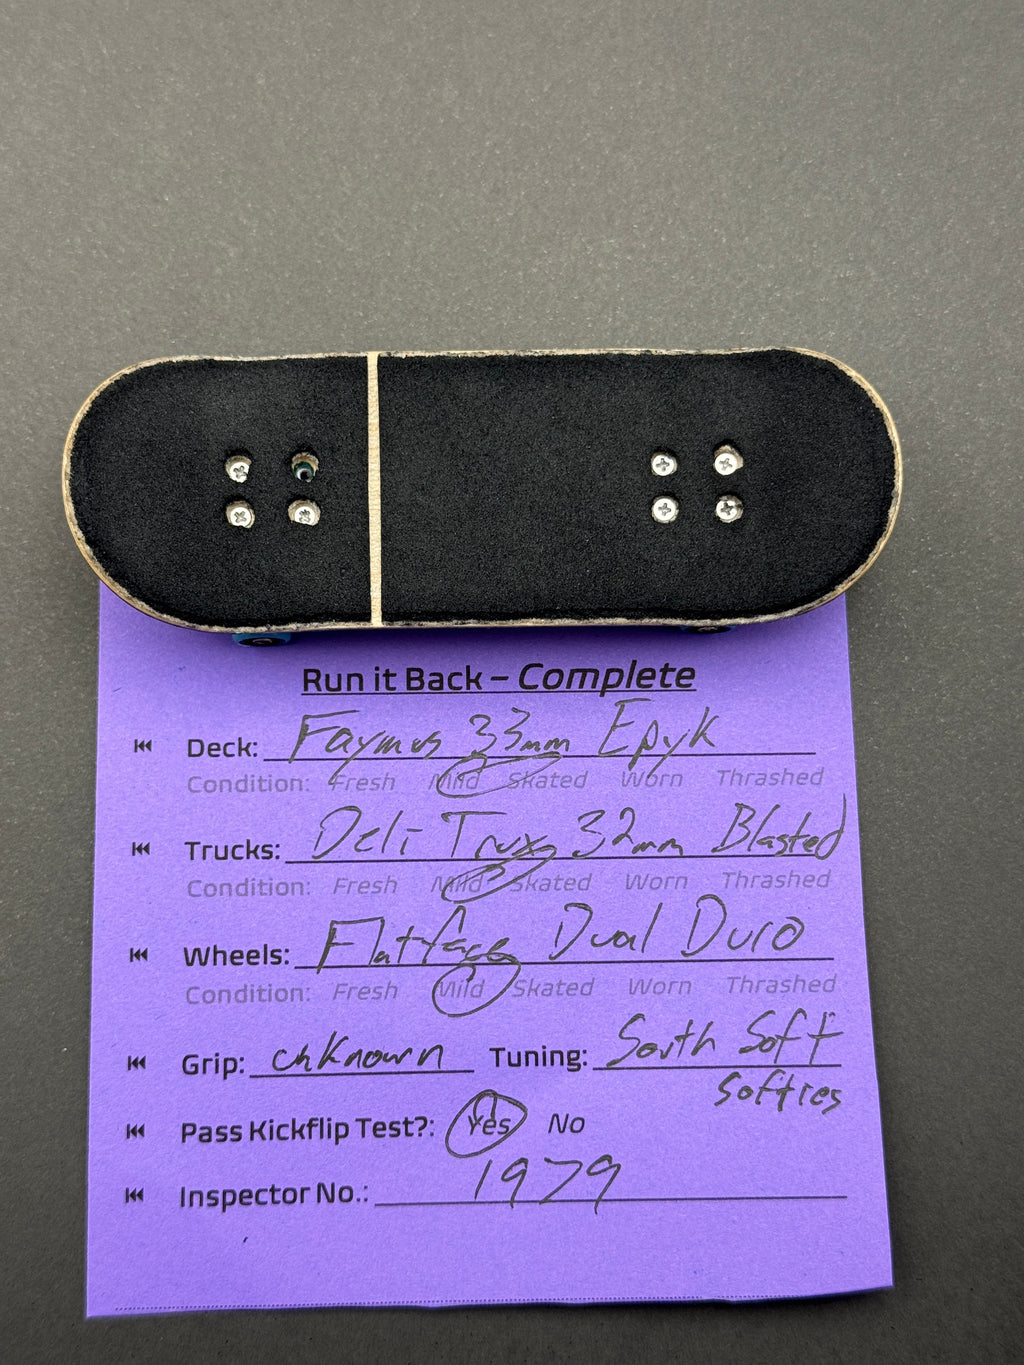 Run it Back – Complete
Deck: Faymus 33mm Epyk
Condition: Fresh Mild Skated Worn Thrashed
Trucks: Deli Trux 32mm Blasted
Condition: Fresh Mild Skated Worn Thrashed
Wheels: Flatface Dual Duro
Condition: Fresh Mild Skated Worn Thrashed
Grip: unknown Tuning: South Soft
Softies
Pass Kickflip Test?: Yes No
Inspector No.: 1979